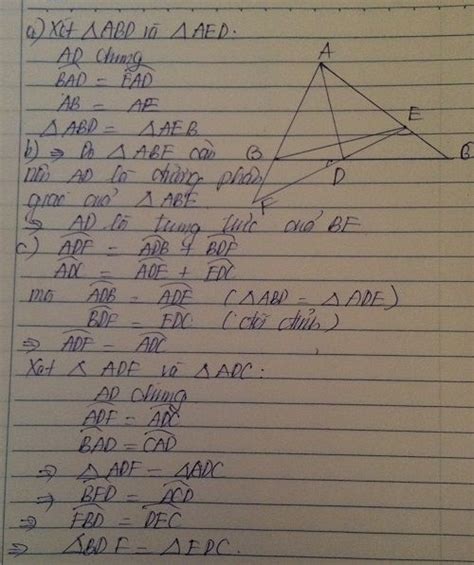 a) Xét △ABD và △AED:
AD chung
BAD = EAD
AB = AE
△ABD = △AEB
b) ⇒ Do △ABE cân
nên AD là đường phân
giác của △ABE
⇒ AD là trung trực của BE
c) ADF = ADB + BDF
ADC = ADE + EDC
mà ADB = ADE (△ABD = △ADE)
BDF = EDC (đối đỉnh)
⇒ ADF = ADC
Xét △ ADF và △ADC:
AD chung
ADF = ADC
BAD = CAD
⇒ △ADF = △ADC
⇒ BFD = ACD
⇒ FBD = DEC
⇒ △BDF = △EDC.
A
E
B
C
D
F